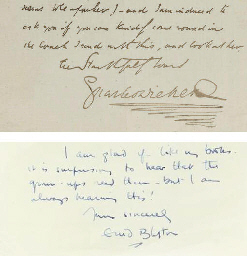 and I am induced to
ask you if you can kindly come round in
the coach I send with this, and look at her.
Faithfully Yours
Charles Dickens
I am glad you like my books.
it is surprising to hear that the
grown-ups read them - but I am
always hearing this!
Yours sincerely
Enid Blyton